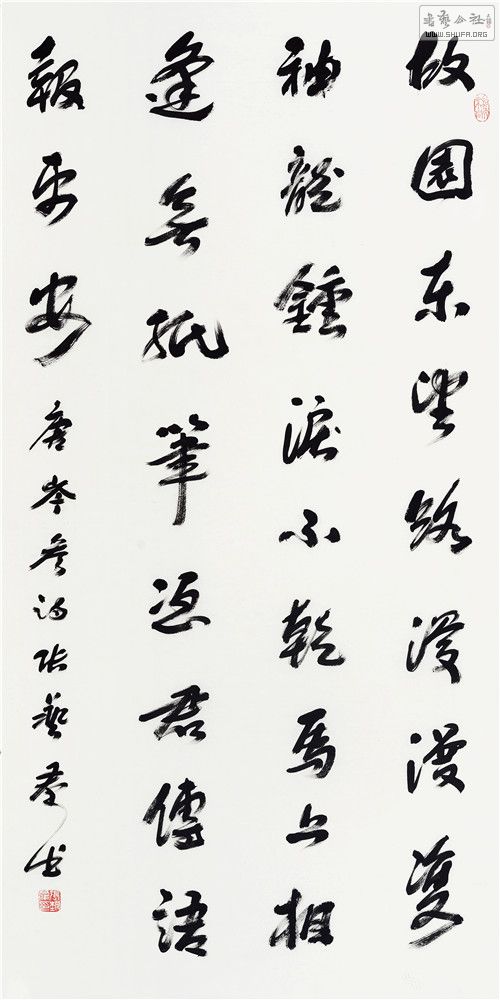 書藝公社
WWW.SHUFA.ORG
故園東望路漫漫雙
袖龍鍾淚不乾馬上相
逢無紙筆憑君傳語
報平安唐岑參詩張藝書